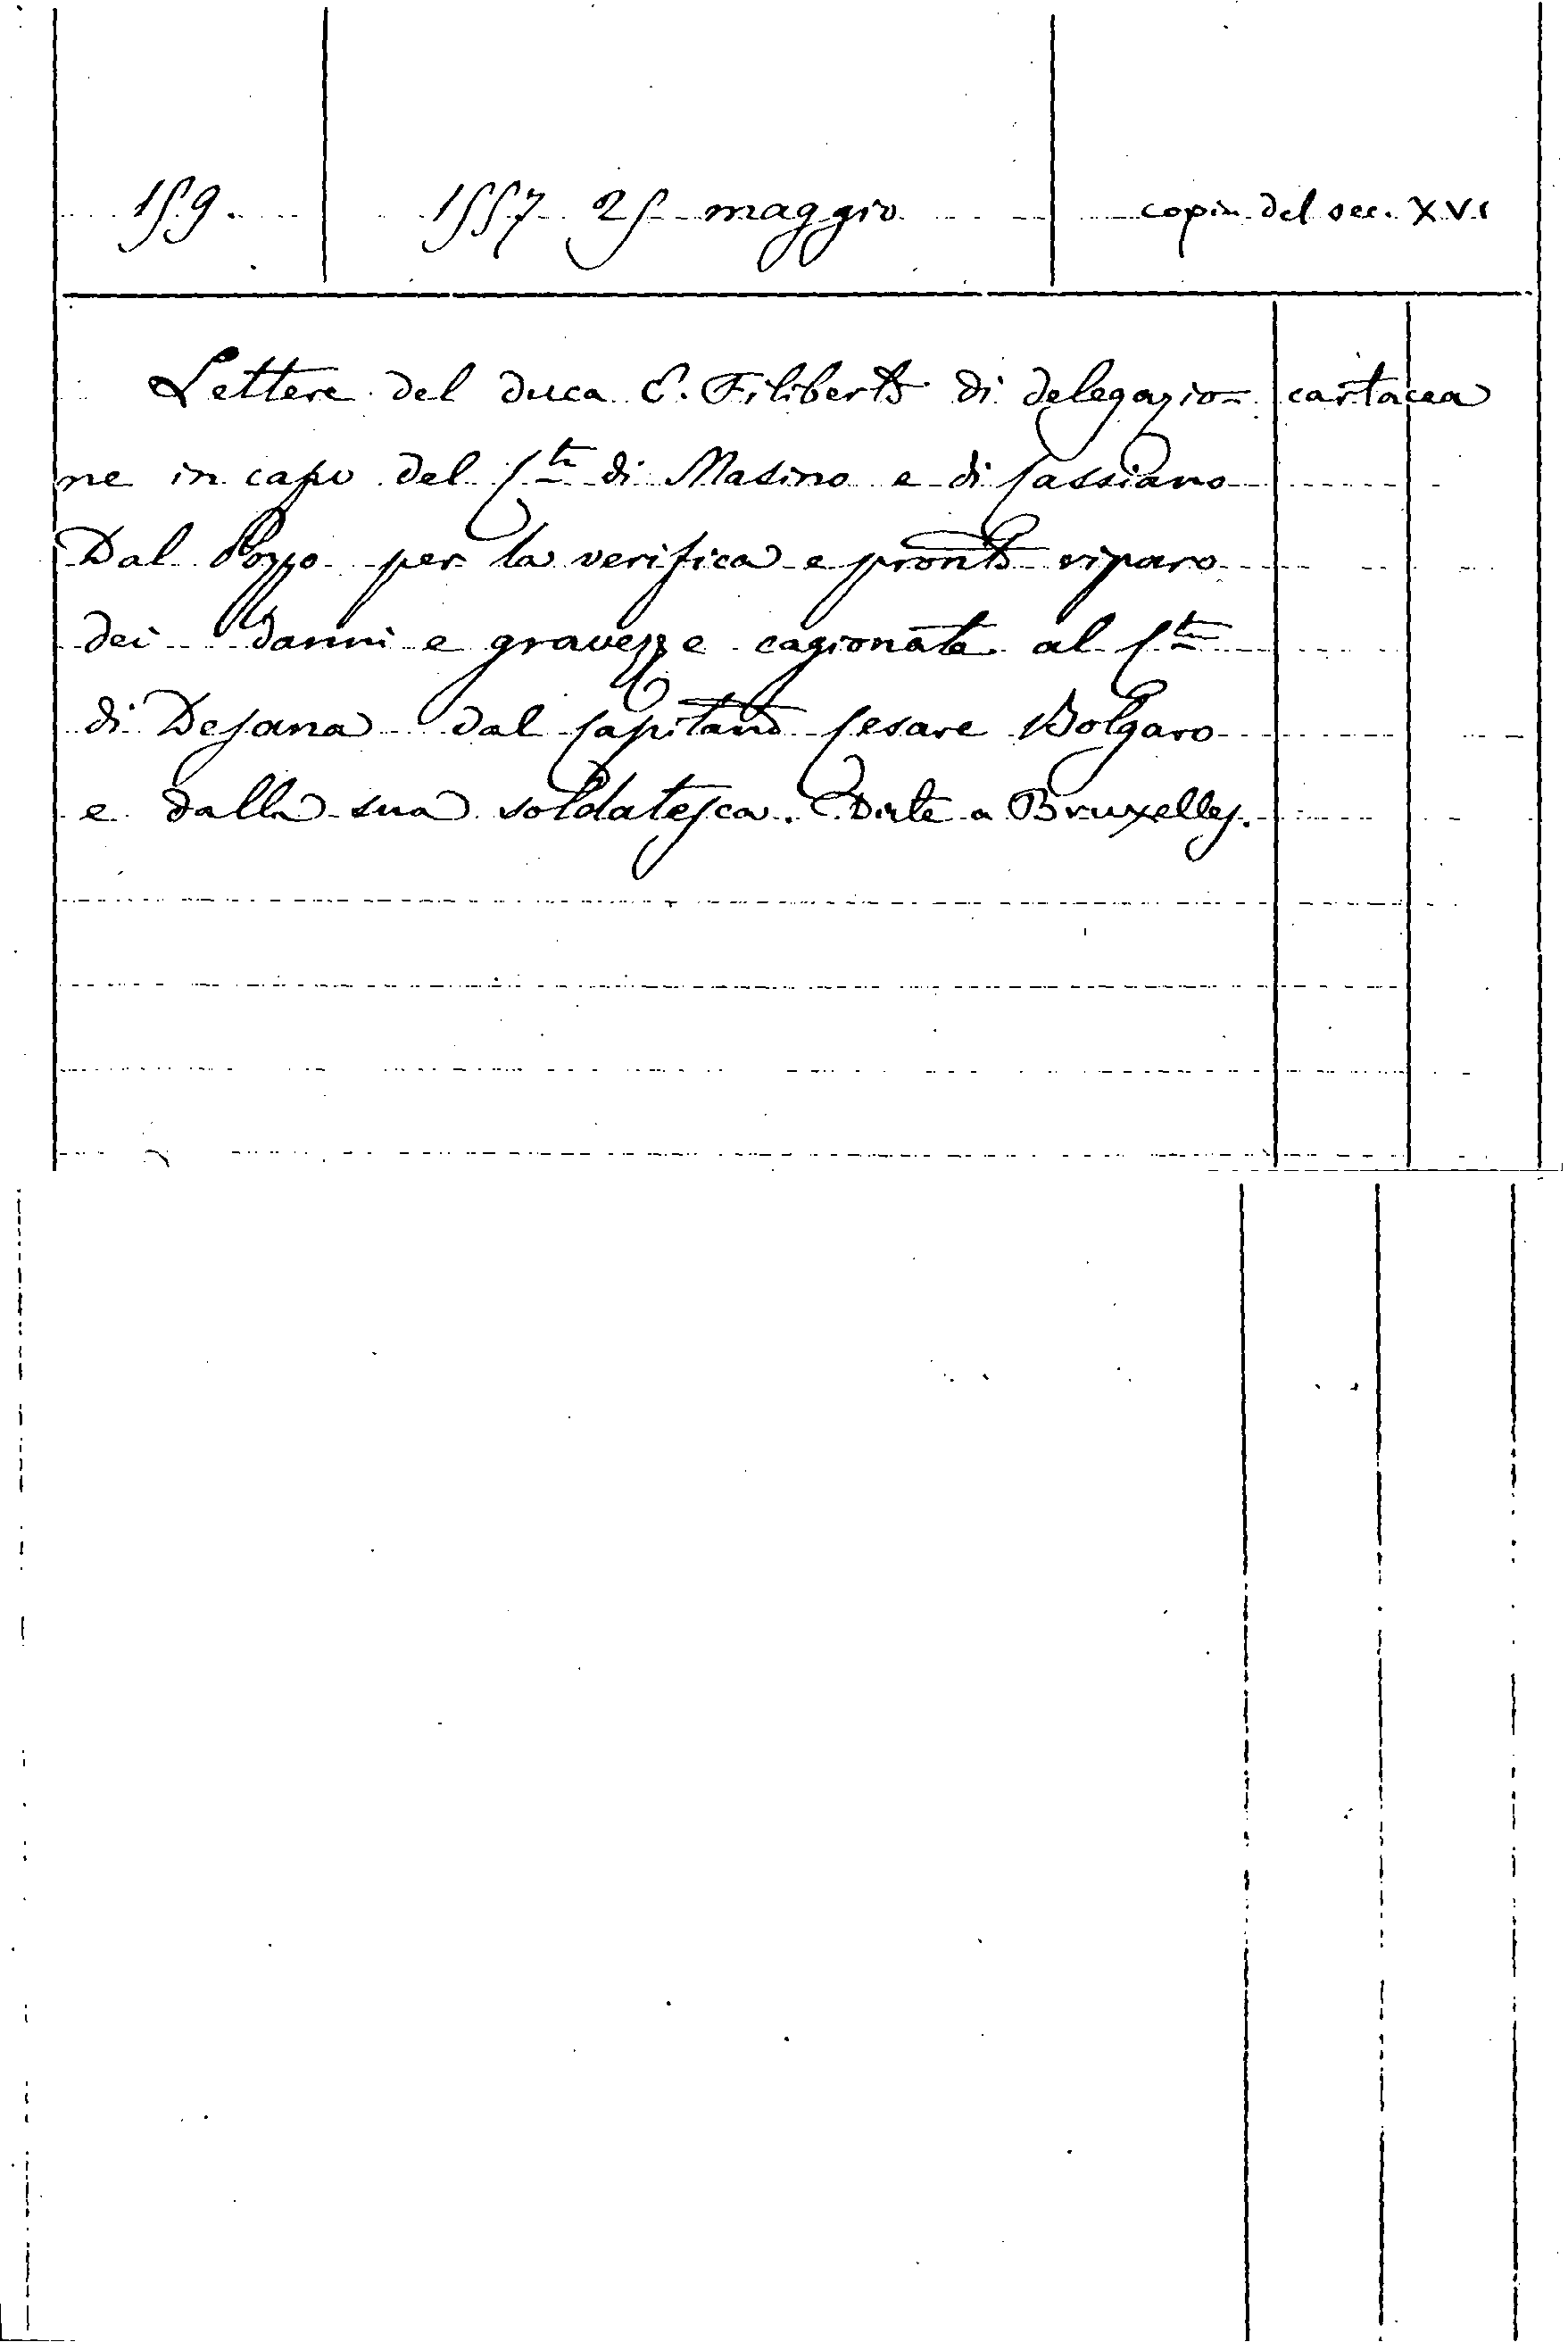 159. 1557 25 maggio copia del sec. XVI
Lettere del duca E. Filiberto di delegazio= cartacea
ne in capo del Cte di Masino e di Cassiano
Dal Pozzo per la verifica e pronto riparo
dei danni e gravezze cagionate al Cte
di Desana dal Capitano Cesare Bolgaro
e dalla sua soldatesca. Date a Bruxelles.